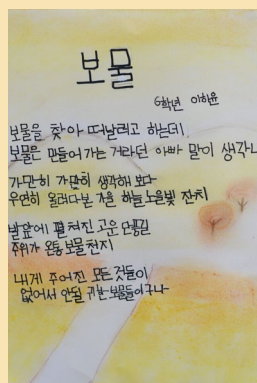 보물
6학년 이하윤
보물을 찾아 떠날려고 하는데
보물은 만들어 가는 거라던 아빠 말이 생각나
가만히 가만히 생각해 보다
우연히 올려다본 가을 하늘 노을빛 잔치
발앞에 펼쳐진 고운 단풍길
주위가 온통 보물천지
내게 주어진 모든것들이
없어서 안될 귀한 보물들이구나